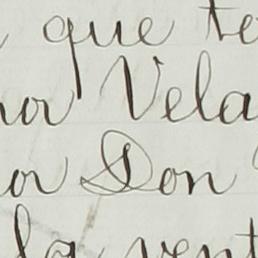 que te
or Vela
or Don
la vent